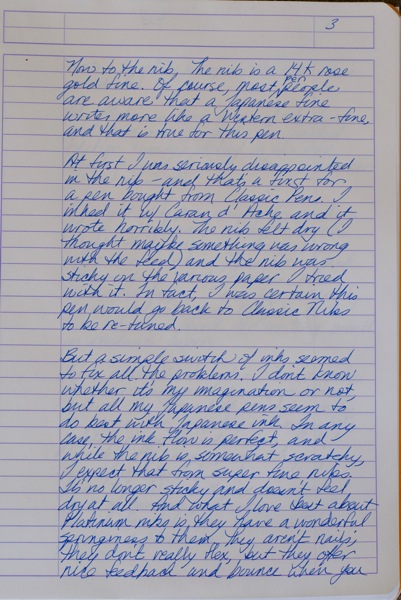 3
Now to the nib. The nib is a 14k rose
gold fine. Of course, most pen people
are aware that a Japanese fine
writes more like a Western extra-fine,
and that is true for this pen.
At first I was seriously disappointed
in the nib – and that's a first for
a pen bought from Classic Pens. I
inked it w/ Caran d'Ache and it
wrote horribly. The nib felt dry (I
thought maybe something was wrong
with the feed) and the nib was
sticky on the various paper I tried
with it. In fact, I was certain this
pen would go back to Classic Nibs
to be re-tuned.
But a simple switch of inks seemed
to fix all the problems. I don't know
whether it's my imagination or not,
but all my Japanese pens seem to
do best with Japanese ink. In any
case, the ink flow is perfect, and
while the nib is somewhat scratchy,
I expect that from super fine nibs.
It's no longer sticky and doesn't feel
dry at all. And what I love best about
Platinum nibs is they have a wonderful
springiness to them. They aren't nails;
they don't really flex, but they offer
nice feedback and bounce when you